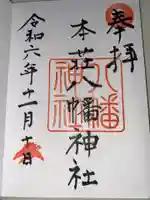 奉拝
本荘八幡神社
八幡神社
令和六年十一月十日